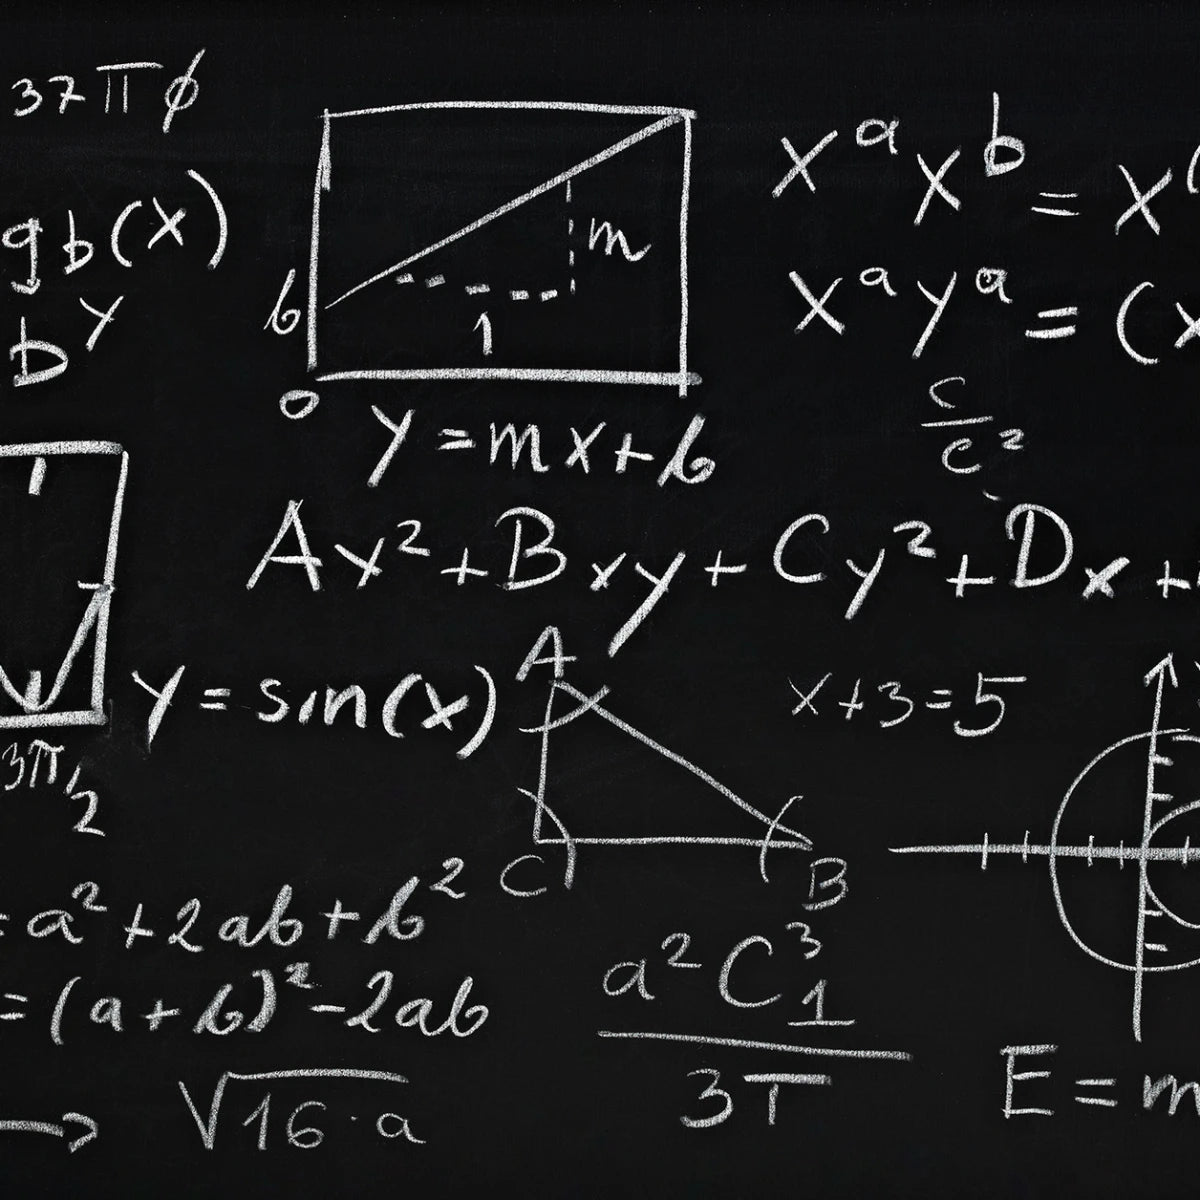 37πϕ
gb(x)
b^y
m
b
1
0
y=mx+b
x^a x^b = x^(
x^a y^a = (x
c/c²
Ax²+Bxy+Cy²+Dx+
y=sin(x)
3π/2
A
C
B
x+3=5
=a²+2ab+b²
=(a+b)²-2ab
→
√16·a
a²C³₁
3T
E=m